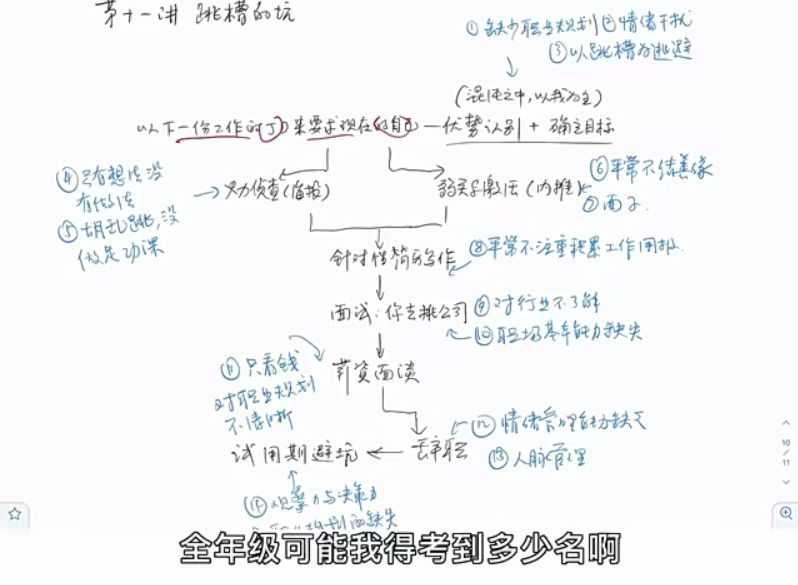 第十一讲 跳槽的坑
① 缺少职业规划 ② 情绪干扰
③ 以跳槽为逃避
(混沌之中,以我为主)
以下一份工作的JD来要求现在的自己 — 优势识别 + 确定目标
④ 只有想法没
有做法
⑤ 胡乱跳,没
做足功课
火力侦查(情报)
(内推)
⑥ 平常不结善缘
⑦ 面子.
针对性简历写作
⑧ 平常不注重积累工作周报.
面试:你去挑公司
⑨ 对行业不了解
⑩ 职场基本能力缺失
⑪ 只看钱
对职业规划
不清晰
薪资面谈
⑫ 情绪管理能力缺乏
⑬ 人脉管理
辞职
试用期避坑
⑭ 观察力与决策力
缺失
10
/
11
全年级可能我得考到多少名啊